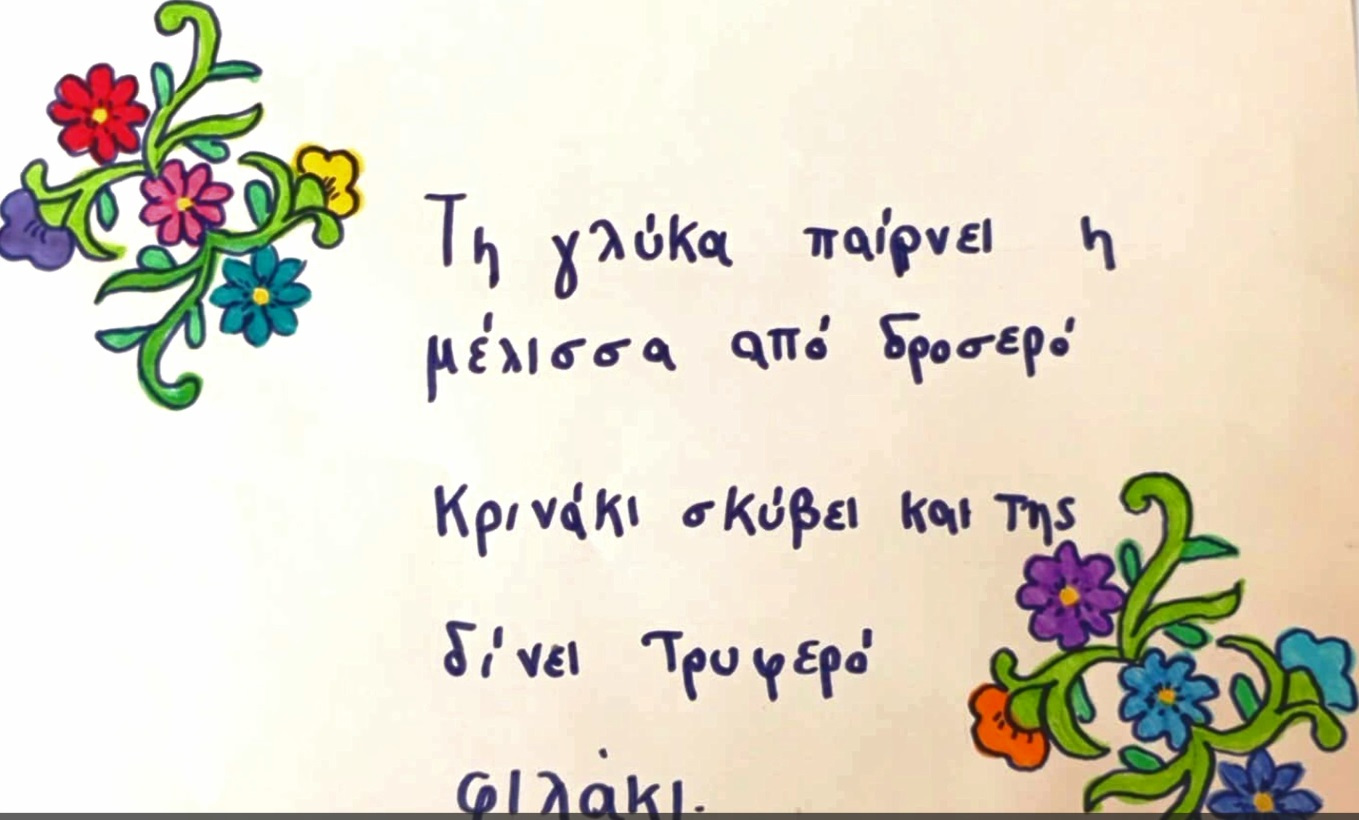 Τη γλύκα παίρνει η
μέλισσα από δροσερό
κρινάκι σκύβει και της
δίνει τρυφερό
φιλάκι.